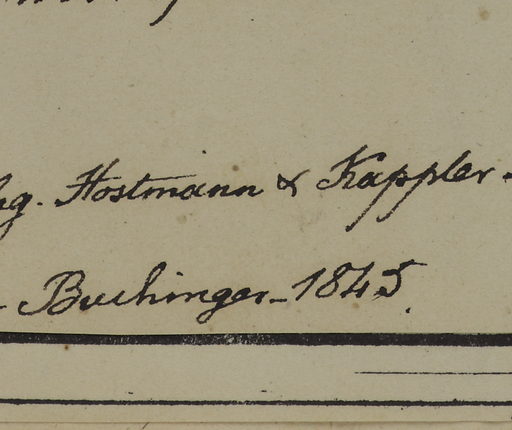 Hostmann & Kappler -
- Buchinger - 1845.